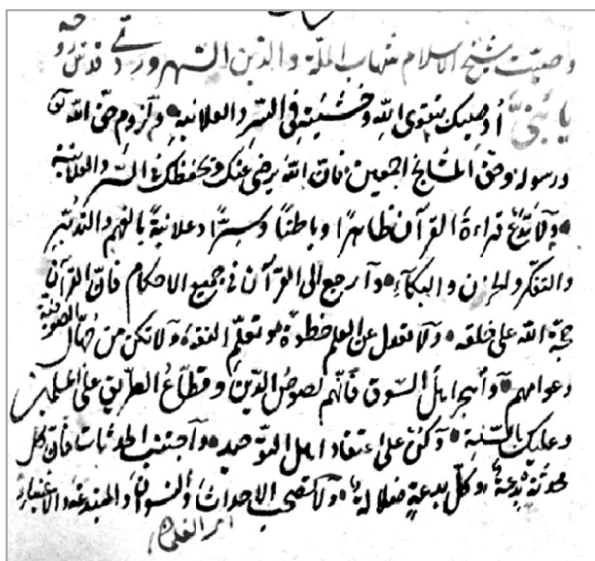 وصیت شیخ الاسلام شهاب الملة والدین السهروردی قدس روحه
یا بُنَیَّ أُوصِیکَ بتقوی اللهِ وخَشْیَتِهِ فی السِّر والعلانیة ولزوم حق الله
ورسوله وحق المشایخ اجمعین فان اللهَ یرضی عنک ویحفظک فی السر والعلانیة
ولا تَدَعْ قراءةَ القرآن ظاهرًا وباطنًا وسِرًّا وعلانیةً بالفهم والتدبّر
والتفکر والحزن والبکاء وارجع الی القرآن فی جمیع الاحکام فانّ القرآن
حجة الله علی خلقه ولا تعدل عن العلم خطوة تعلّم الفقه ولا تکن من جُهّال الصوفیة
وعوامهم واهجر اهل السّوق فأنّهم لصوصُ الدّین وقطّاعُ الطریق علی المسلمین
وعلیک بالسّنة وکن علی اعتقاد اهل التوّحید واجتنب المحدثات فان کل
محدثة بدعة وکلّ بدعةٍ ضلالة ولا تصحب الاحداث والنسوان والمبتدعة والاغنیاء